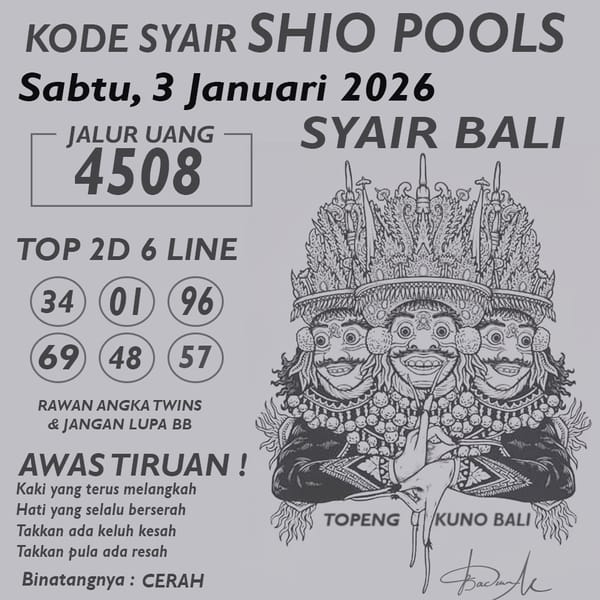 KODE SYAIR SHIO POOLS
Sabtu, 3 Januari 2026
JALUR UANG
4508
SYAIR BALI
TOP 2D 6 LINE
34 01 96
69 48 57
RAWAN ANGKA TWINS
& JANGAN LUPA BB
AWAS TIRUAN !
Kaki yang terus melangkah
Hati yang selalu berserah
Takkan ada keluh kesah
Takkan pula ada resah
Binatangnya : CERAH
TOPENG KUNO BALI